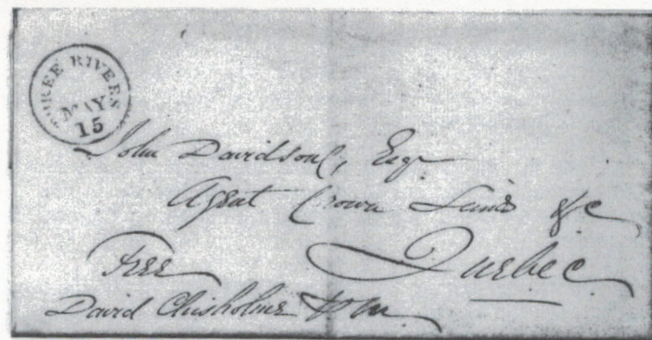 THREE RIVERS
MAY
15
John Davidson, Esqr
Agent Crown Lands &c
Quebec
Free
David Chisholme P M